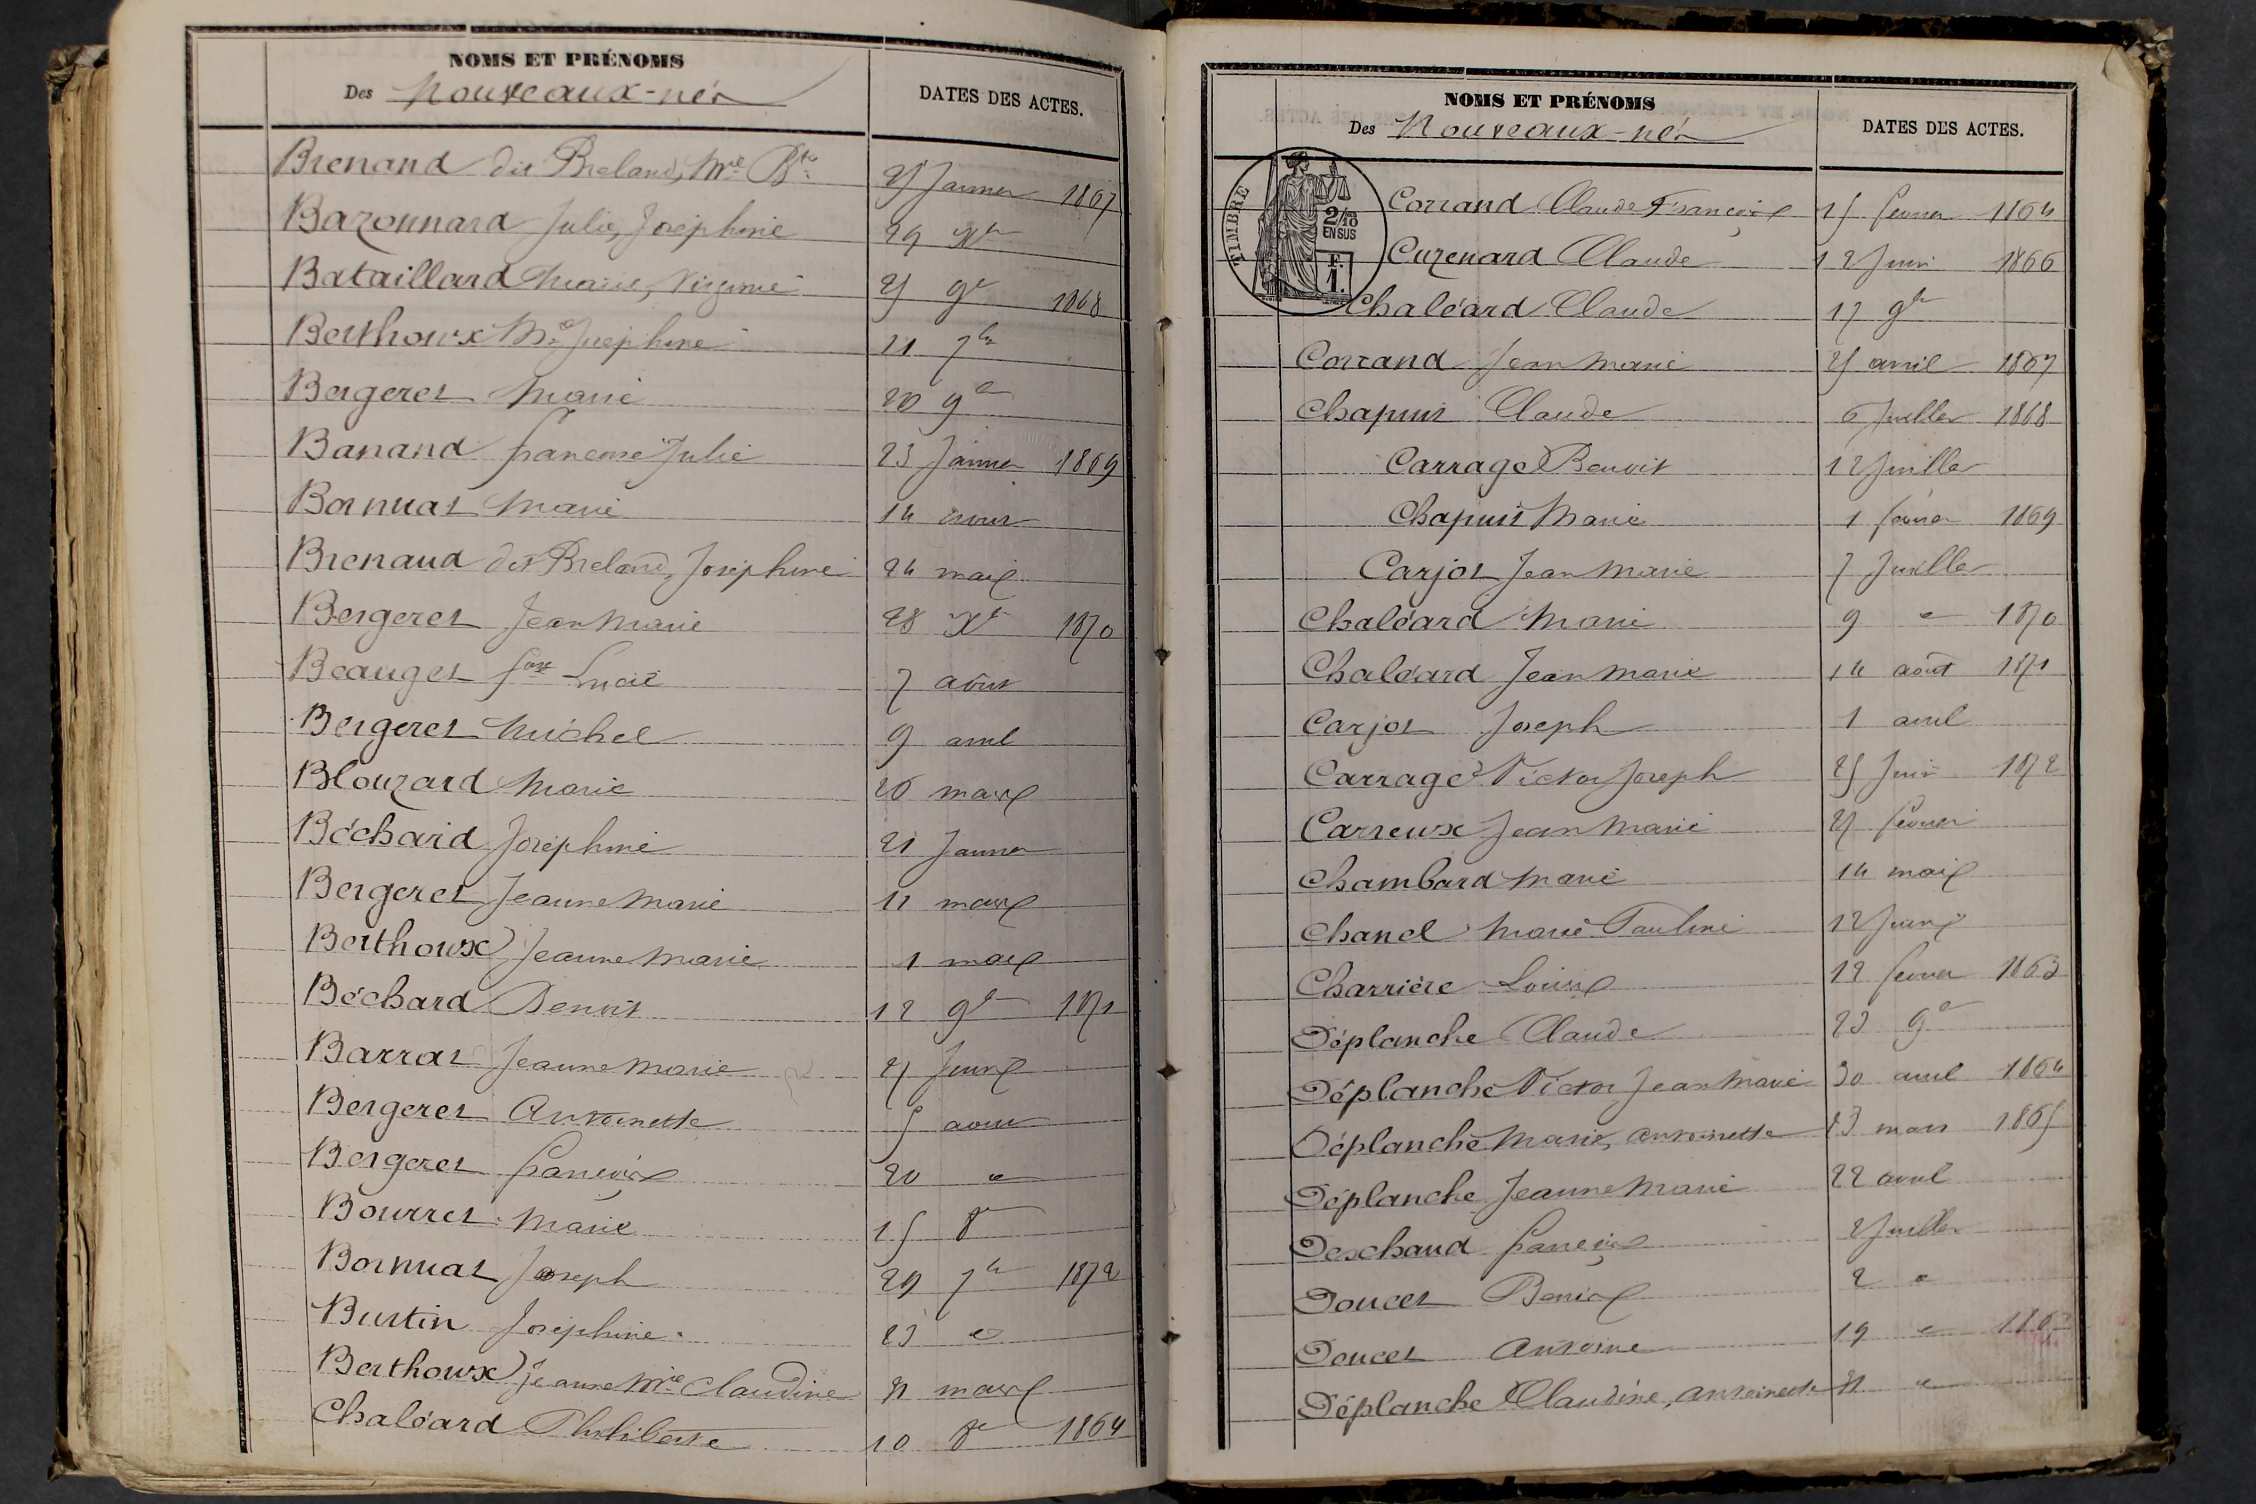 NOMS ET PRÉNOMS
Des Nouveaux-nés
DATES DES ACTES.
Brenand dit Breland, Mie Bte 25 Janvier 1867
Bazonnard Julie, Joséphine 29 Xbre
Bataillard Marie, Virginie 25 9bre 1868
Berthoux Mie Josephine 21 7bre
Bergeret Marie 20 9bre
Banand Francoise Julie 23 Janvier 1869
Bornuat Marie 14 aout
Brenaud dit Breland, Joséphine 24 mars
Bergeret Jean Marie 28 Xbre 1870
Beauget Fçoise Lucie 7 août
Bergeret Michel 9 avril
Blouzard Marie 26 mars
Béchard Joséphine 21 Janvier
Bergeret Jeanne Marie 11 mars
Berthoux Jeanne Marie 1 mars
Béchard Benoit 12 9bre 1871
Barrat Jeanne Marie
Bergeret Antoinette 5 aout
Bergeret François 20 "
Bourret Marie 15 8bre
Bornuat Joseph 29 7bre 1872
Burtin Joséphine. 23 "
Berthoux Jeanne Mie Claudine 21 mars
Chaléard Philiberte 10 8bre 1864
NOMS ET PRÉNOMS
Des Nouveaux-nés
DATES DES ACTES.
TIMBRE
2/10 EN SUS
F. 1.
Corrand Claude François 15 février 1864
Curenard Claude 12 Juin 1866
Chaléard Claude 17 9bre
Corrand Jean Marie 25 avril 1867
Chapuis Claude 6 Juillet 1868
Carrage Benoit 12 Juillet
Chapuis Marie 1 février 1869
Carjot Jean Marie 7 Juillet
Chaléard Marie 9 " 1870
Chaléard Jean Marie 14 août 1871
Carjot Joseph 1 avril
Carrage Victor Joseph 25 Juin 1872
Carreux Jean Marie 27 février
Chambard Marie 14 mars
Chanel Marie Pauline 12
Charrière Louise 12 février 1863
Déplanche Claude 23 9bre
Déplanche Victor Jean Marie 30 avril 1864
Déplanche Marie, Antoinette 23 mars 1865
Déplanche Jeanne Marie 22 avril
Deschaud François 2 Juillet
Doucet 2 "
Doucet Antoine 19 "
Déplanche Claudine, Antoinette 21 "